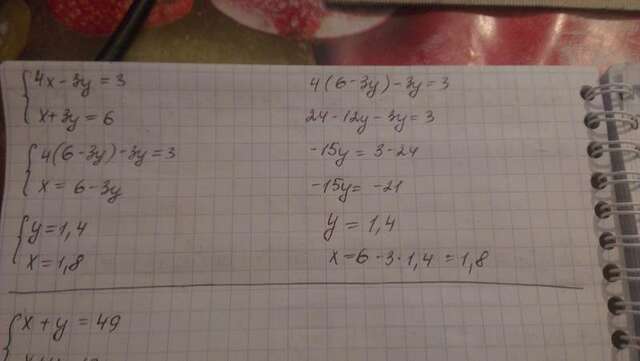 4x - 3y = 3
x + 3y = 6
4(6 - 3y) - 3y = 3
x = 6 - 3y
y = 1,4
x = 1,8
4(6 - 3y) - 3y = 3
24 - 12y - 3y = 3
-15y = 3 - 24
-15y = -21
y = 1,4
x = 6 - 3 · 1,4 = 1,8
x + y = 49